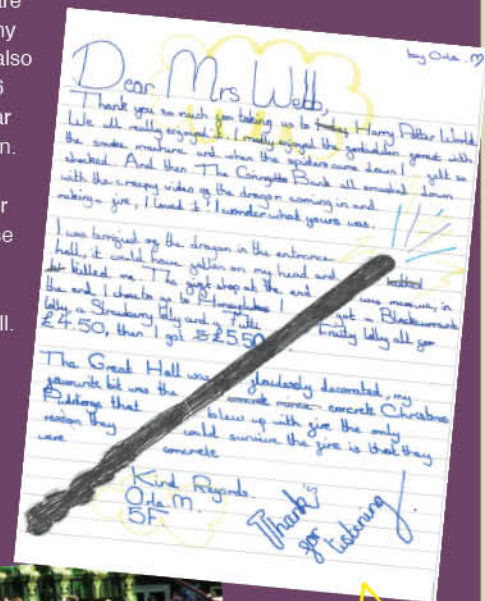 are
ny
also
6
ar
n.
r
se
ll.
by Orla.
Dear Mrs Webb,
Thank you so much for taking us to Harry Potter World.
We all really enjoyed it. I really enjoyed the forbidden forest with
the smoke machine and when the spiders came down I felt so
shocked. And then The Gringotts Bank all smashed down
with the creepy video of the dragon coming in and
making a fire, I loved it! I wonder what yours was.
I was terrified of the dragon in the entrance
hall, it could have fallen on my head and
killed me. The gift shop at the end was massive, in
the end, I chose to go to Honeydukes I got a Blackcurrant
lolly, a Strawberry lolly and a Tutti Fruity lolly all for
£4.50, then I got £5.50
The Great Hall was fabulously decorated, my
favourite bit was the concrete Christmas
Puddings that blew up with fire the only
reason they could survive the fire is that they
were concrete
Kind Regards.
Orla M.
5F
Thank
for listening!